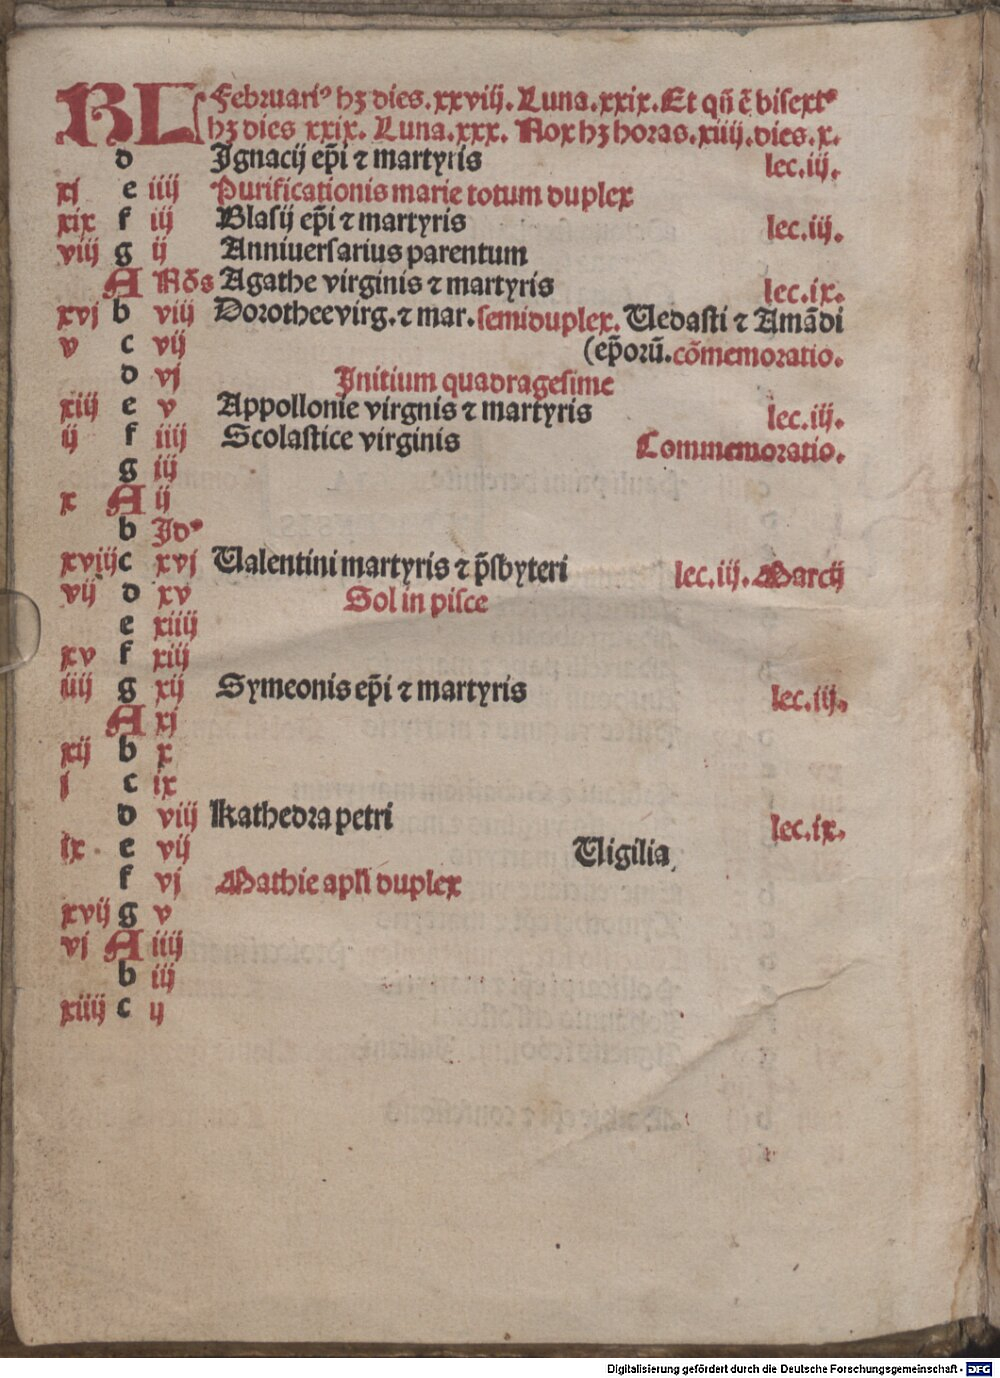 KL Februariꝰ hꝫ dies.xxviij. Luna.xxix. Et qñ ē bisextꝰ
hꝫ dies xxix. Luna.xxx. Nox hꝫ horas.xiiij.dies.x.
d Ignacij ep̄i ⁊ martyris lec.iij.
xj e iiij Purificationis marie totum duplex
xix f iij Blasij ep̄i ⁊ martyris lec.iij.
viij g ij Anniversarius parentum
A Nōs Agathe virginis ⁊ martyris lec.ix.
xvj b viij Dorothee virg. ⁊ mar. semiduplex. Vedasti ⁊ Amādi
v c vij (ep̄orū. cōmemoratio.
d vj Initium quadragesime
xiij e v Appollonie virgnis ⁊ martyris lec.iij.
ij f iiij Scolastice virginis Commemoratio.
g iij
x A ij
b Idꝰ
xviij c xvj Valentini martyris ⁊ p̄sbyteri lec.iij. Marcij
vij d xv Sol in pisce
e xiiij
xv f xiij
iiij g xij Symeonis ep̄i ⁊ martyris lec.iij.
A xj
xij b x
j c ix
d viij Kathedra petri lec.ix.
ix e vij Vigilia
f vj Mathie apl̄i duplex
xvij g v
vj A iiij
b iij
xiiij c ij
Digitalisierung gefördert durch die Deutsche Forschungsgemeinschaft - DFG